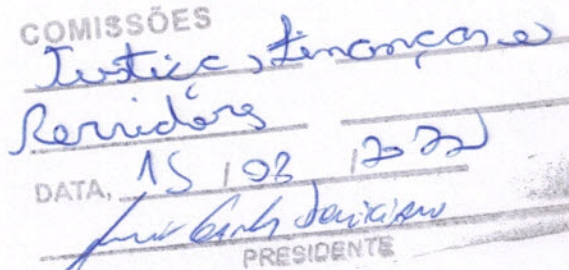 COMISSÕES
Justiça, Finanças e
Servidores
DATA, 15 / 03 / 2022
PRESIDENTE